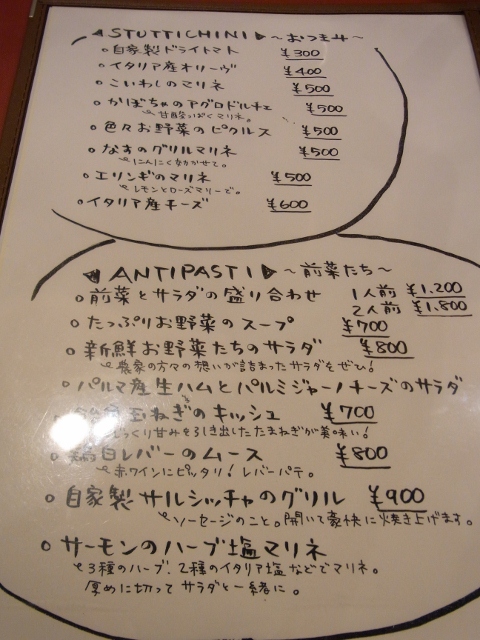 STUTTICHINI ～おつまみ～
○自家製ドライトマト ¥300
○イタリア産オリーヴ ¥400
○こいわしのマリネ ¥500
○かぼちゃのアグロドルチェ ¥500
甘酸っぱくマリネ。
○色々お野菜のピクルス ¥500
○なすのグリルマリネ ¥500
にんにくをきかせて。
○エリンギのマリネ ¥500
レモンとローズマリーで。
○イタリア産チーズ ¥600
ANTIPASTI ～前菜たち～
○前菜とサラダの盛り合わせ 1人前 ¥1.200
2人前 ¥1.800
○たっぷりお野菜のスープ ¥700
○新鮮お野菜たちのサラダ ¥800
農家の方々の想いが詰まったサラダをぜひ!
○パルマ産生ハムとパルミジャーノチーズのサラダ
玉ねぎのキッシュ ¥700
じっくり甘みを引き出したたまねぎが美味い!
○鶏白レバーのムース ¥800
赤ワインにピッタリ!レバーパテ。
○自家製サルシッチャのグリル ¥900
ソーセージのこと。開いて豪快に焼き上げます。
○サーモンのハーブ塩マリネ
3種のハーブ、2種のイタリア塩などでマリネ。
厚めに切ってサラダと一緒に。